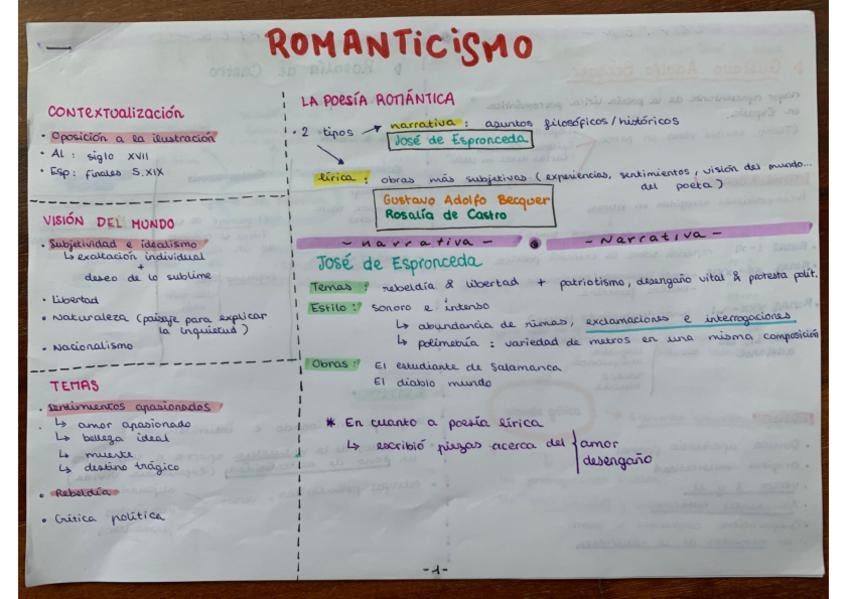 ROMANTICISMO
CONTEXTUALIZACIÓN
• Oposición a la ilustración
• Al : siglo XVII
• Esp: finales S.XIX
VISIÓN DEL MUNDO
• Subjetividad e idealismo
↳ exaltación individual
+
deseo de lo sublime
• Libertad
• Naturaleza (paisaje para explicar
la inquietud)
• Nacionalismo
TEMAS
• Sentimientos apasionados
↳ amor apasionado
↳ belleza ideal
↳ muerte
↳ destino trágico
• Rebeldía
• Crítica política
LA POESÍA ROMÁNTICA
• 2 tipos → narrativa : asuntos filosóficos/históricos
José de Espronceda
lírica : obras más subjetivas (experiencias, sentimientos, visión del mundo...
del poeta)
Gustavo Adolfo Becquer
Rosalía de Castro
- narrativa - • - Narrativa -
José de Espronceda
Temas : rebeldía & libertad + patriotismo, desengaño vital & protesta polít.
Estilo : sonoro e intenso
↳ abundancia de rimas, exclamaciones e interrogaciones
↳ polimetría : variedad de metros en una misma composición
Obras : El estudiante de Salamanca
El diablo mundo
* En cuanto a poesía lírica
↳ escribió piezas acerca del { amor
desengaño
-1-